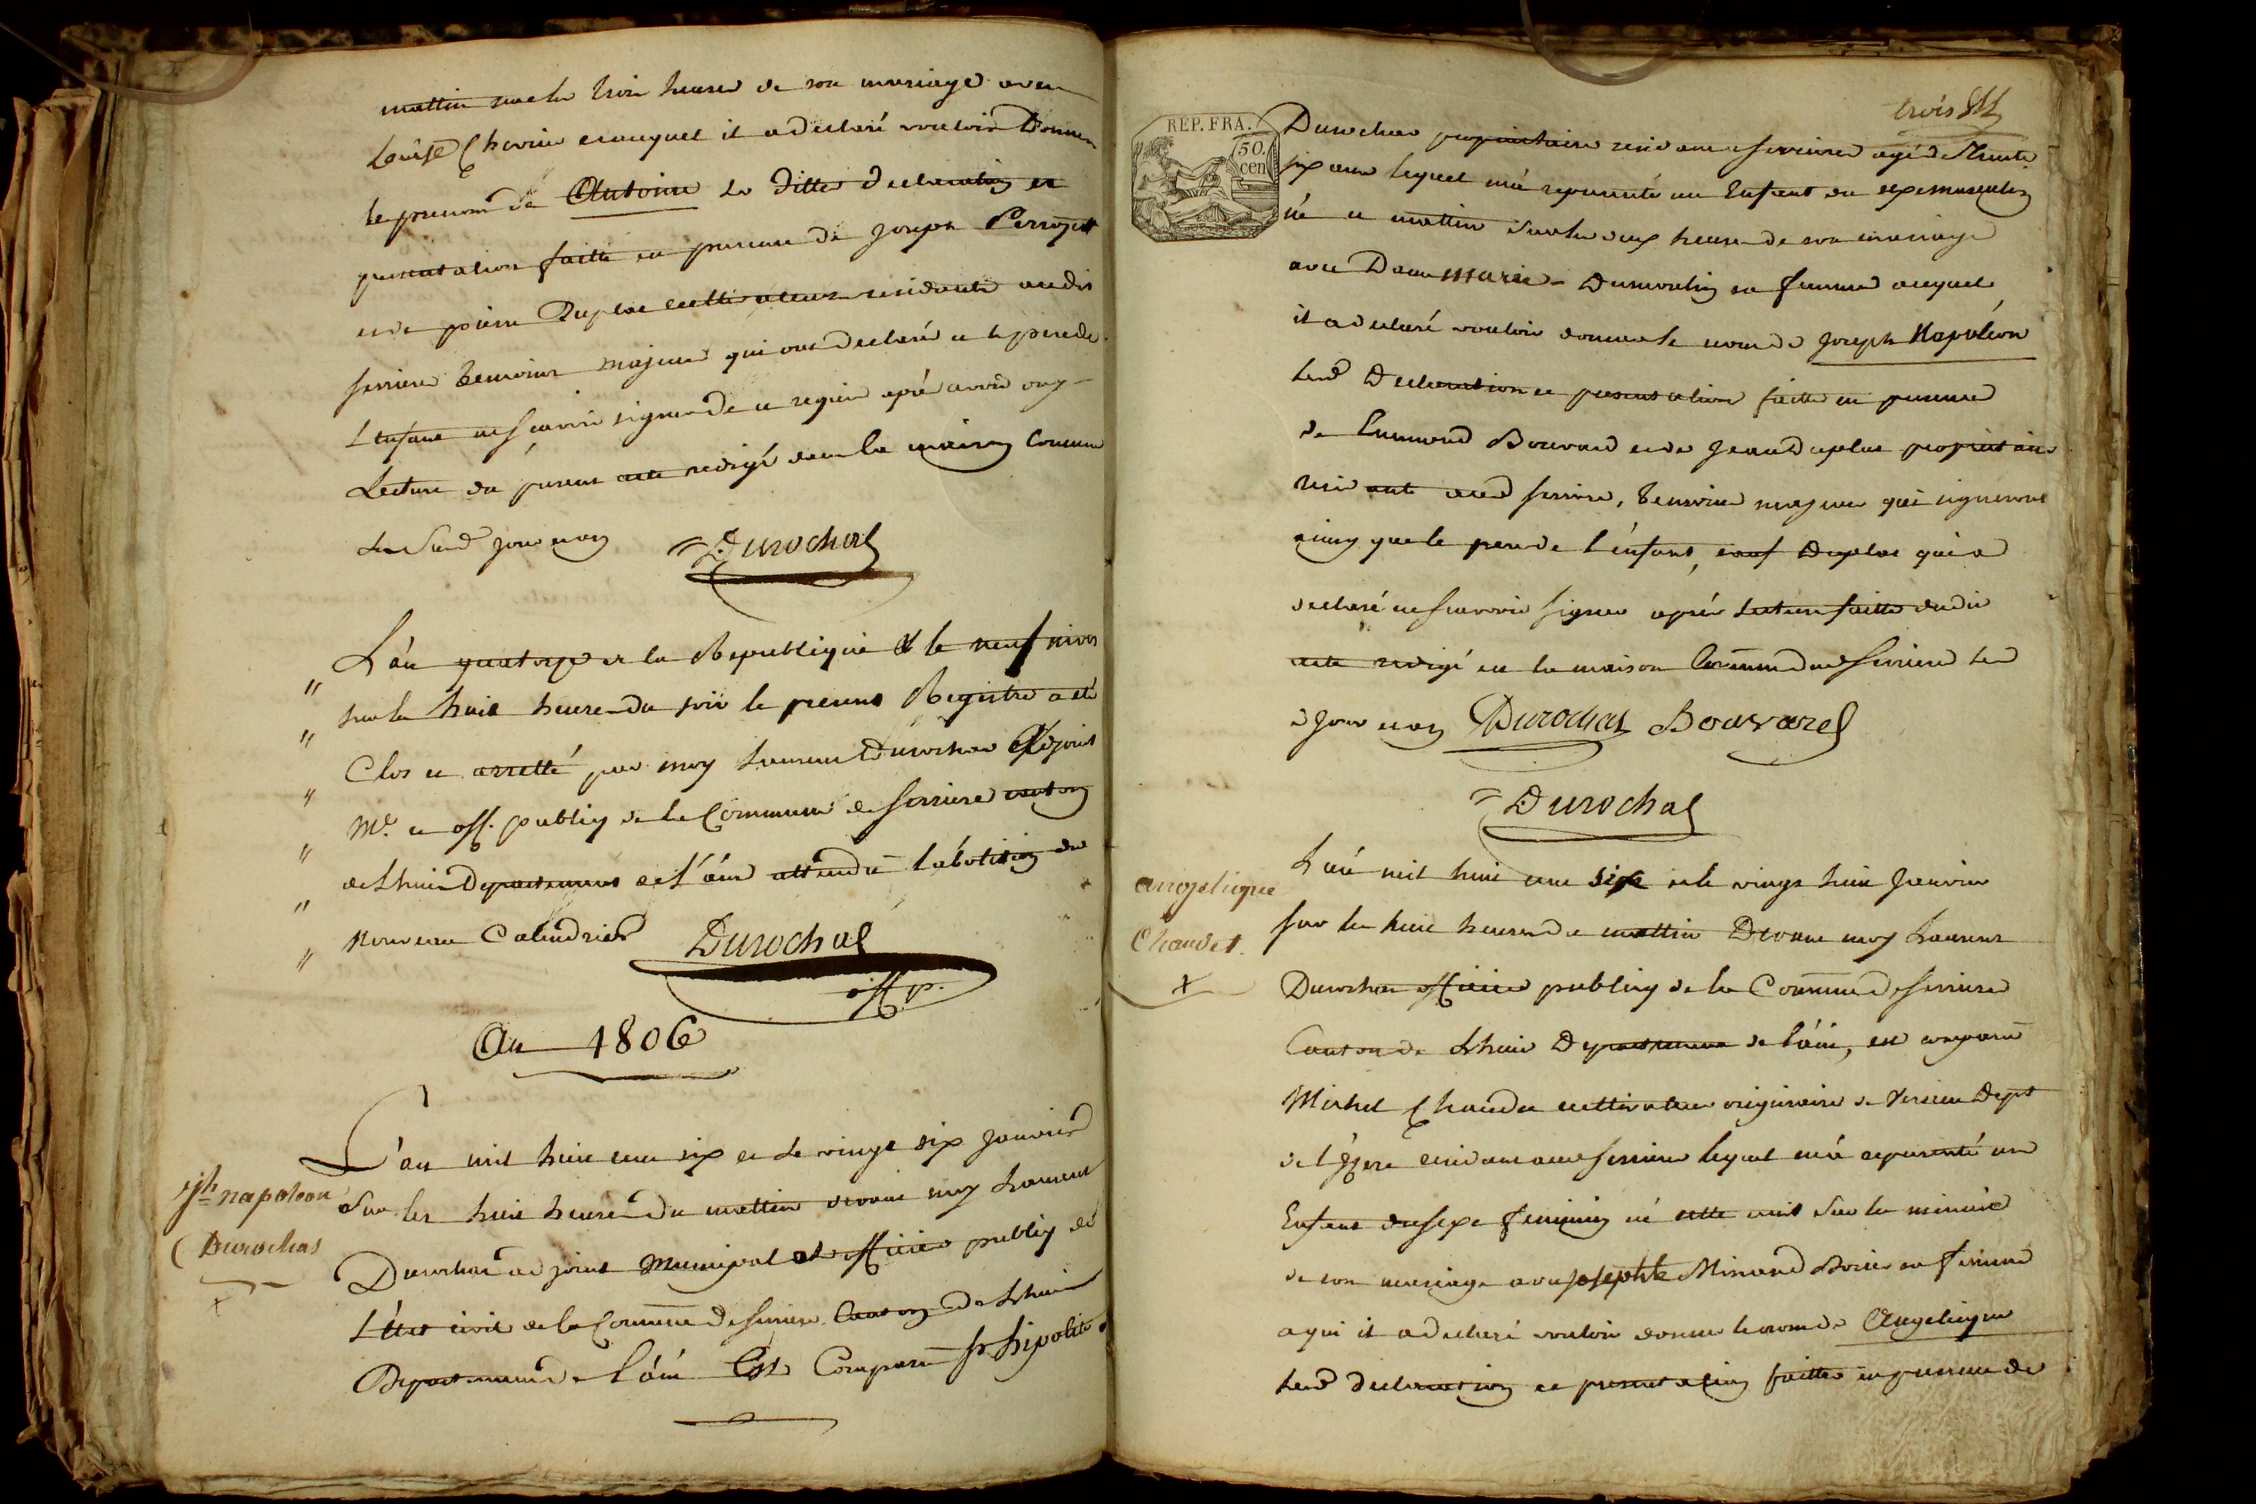 mattin sur les trois heures de son mariage avec
Louise Chevin et auquel il a declaré vouloir Donner
le prenom de Antoine la ditte declaration et
presentation faitte en presence de joseph Perrozet
et de pierre Duplas cultivateurs residants audit
serriere temoins majeurs qui ont declaré et le pere de
L'enfant ne scavoir signer de ce requis après avoir ouy
Lecture du present acte redigé dans la maison Commune
Les Susd jour et an Durochat
L'an quatorze de la Republique & le neuf nivos
sur les huit heures du soir le present Registre a été
Clos et arretté par moy Laurent Durochat Adjoint
Mr. et off. public de la Commune de serriere canton
de Lhuis Departement de l'áin attendu l'abolition du
Nouveau Calendrier Durochat
off. p.
An 1806
L'an mil huit cent six et le vingt six janvier
Sur les huit heures du mattin devant moy Laurent
Durochat adjoint Municipal et officier public de
L'état civil de la Commune de serriere Canton de Lhuis
Departement de l'áin Est Comparu hipolite
jph napoleon
Durochas
x
trois
REP. FRA.
50.
cen
Durochat proprietaire residant a serriere agé de Trente
six ans lequel m'a représenté un Enfant du sexe masculin
né ce mattin sur les deux heures de son mariage
avec Dame Marie Dumoulin sa femme auquel
il a declaré vouloir donner le nom de joseph Napoléon
Lesd Declaration et presentation faitte en presence
de Bouvard et de Jean Duplas proprietaire
residants aud serriere, temoins majeurs qui signeront
ainsy que le pere de l'enfant, sauf Duplas qui a
declaré ne scavoir signer après Lecture faitte dudit
acte redigé en la maison Commune dud serriere Les
d jour et an Durochat Bouvarel
Durochat
L'an mil huit cent six et le vingt huit janvier
sur les huit heures du mattin Devant moy Laurent
Durochat officier public de la Commune de serriere
Canton de Lhuis Departement de l'áin, est comparu
Michel Chaudet cultivateur originaire de Versieu Dept
de l'izere residant aud serriere lequel m'a representé un
Enfant du sexe feminin né cette nuit sur les minuit
de son mariage avec josephte Minand sa femme
a qui il a declaré vouloir donner le nom de Angelique
Lesd declaration et presentation faittes en presence de
angelique
Chaudet.
x